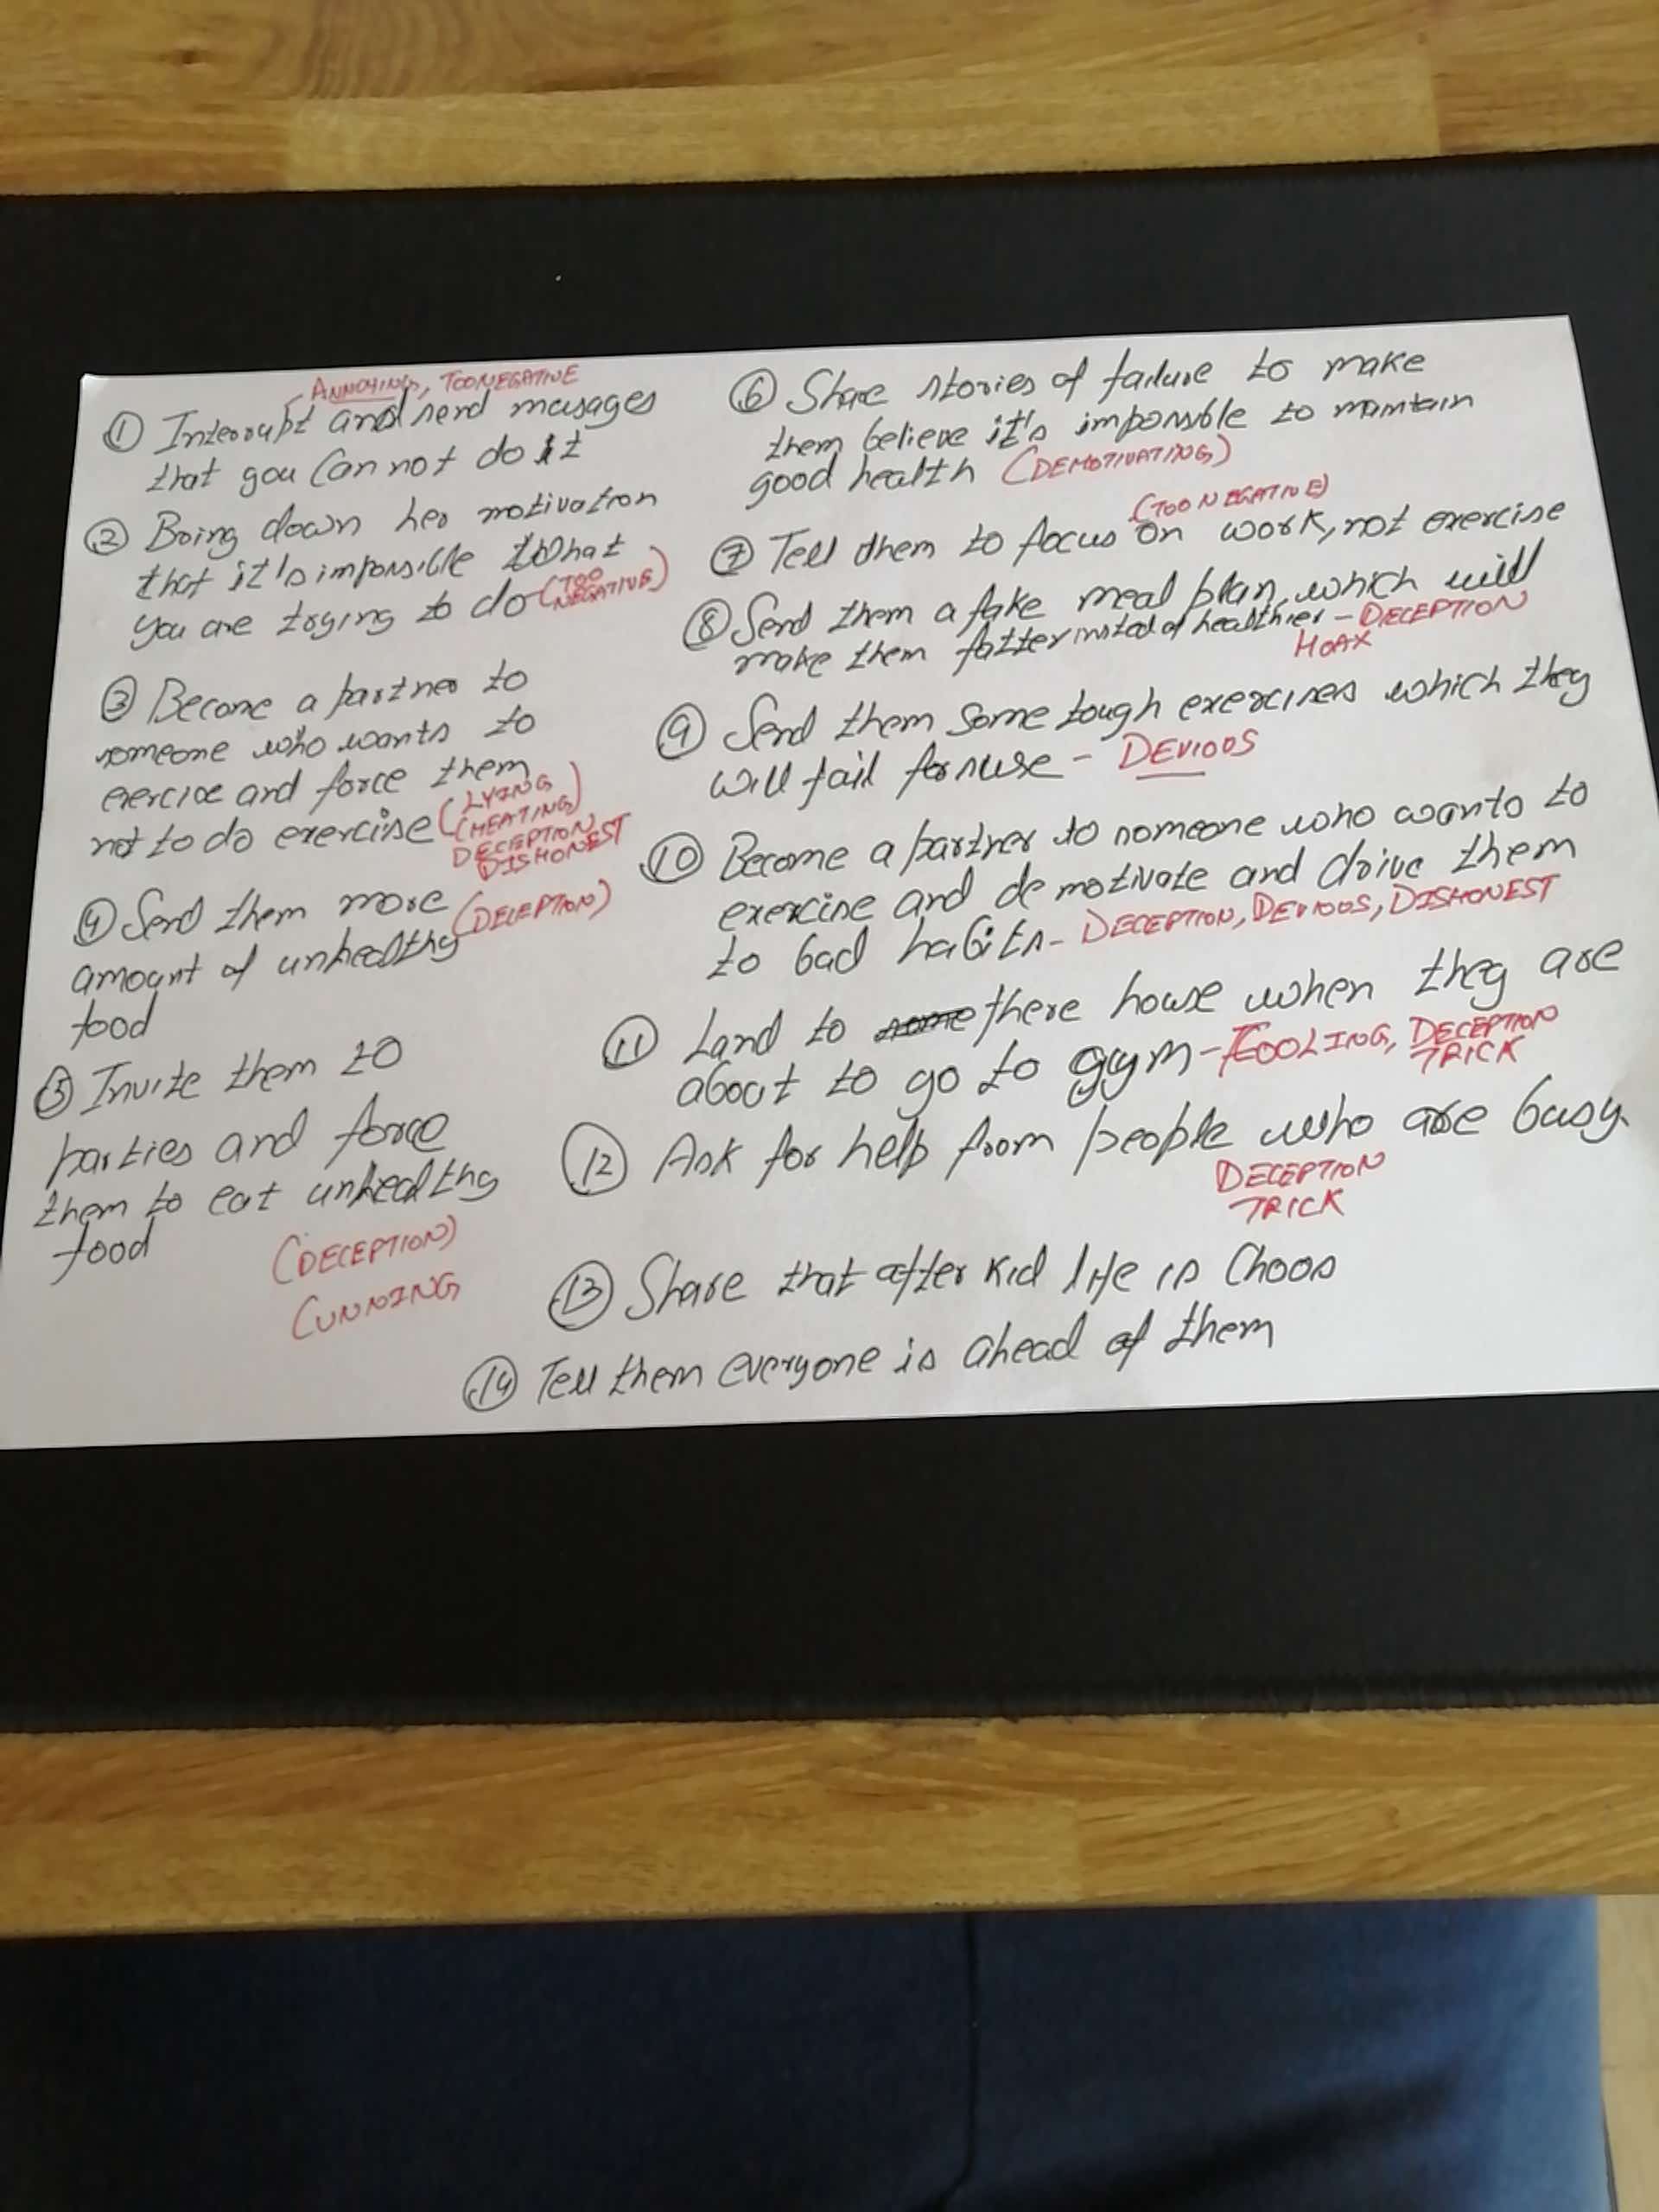 ANNOYING, TOO NEGATIVE
① Interrupt and send messages
that you can not do it
② Bring down her motivation
that it's impossible what
you are trying to do (TOO
NEGATIVE)
③ Become a partner to
someone who wants to
exercise and force them
not to do exercise (LYING
CHEATING)
DECEPTION
DISHONEST
④ Send them more (DECEPTION)
amount of unhealthy
food
⑤ Invite them to
parties and force
them to eat unhealthy
food
(DECEPTION)
CUNNING
⑥ Share stories of failure to make
them believe it's impossible to maintain
good health (DEMOTIVATING)
(TOO NEGATIVE)
⑦ Tell them to focus on work, not exercise
⑧ Send them a fake meal plan, which will
make them fatter insted of healthier - DECEPTION
HOAX
⑨ Send them some tough exercises which they
will fail for sure - DEVIOOS
⑩ Become a partner to someone who wants to
exercise and demotivate and drive them
to bad habits - DECEPTION, DEVIOOS, DISHONEST
⑪ Land to some there house when they are
about to go to gym - FOOLING, DECEPTION
TRICK
⑫ Ask for help from people who are busy.
DECEPTION
TRICK
⑬ Share that after kid life is Choos
⑭ Tell them everyone is ahead of them